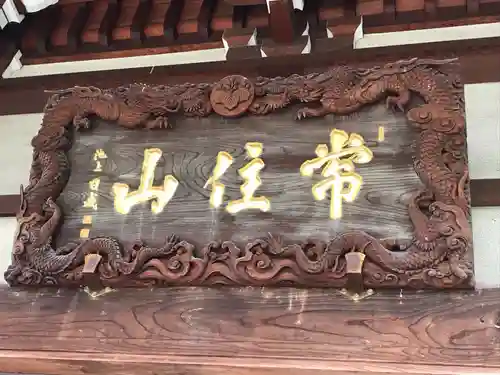 常住山